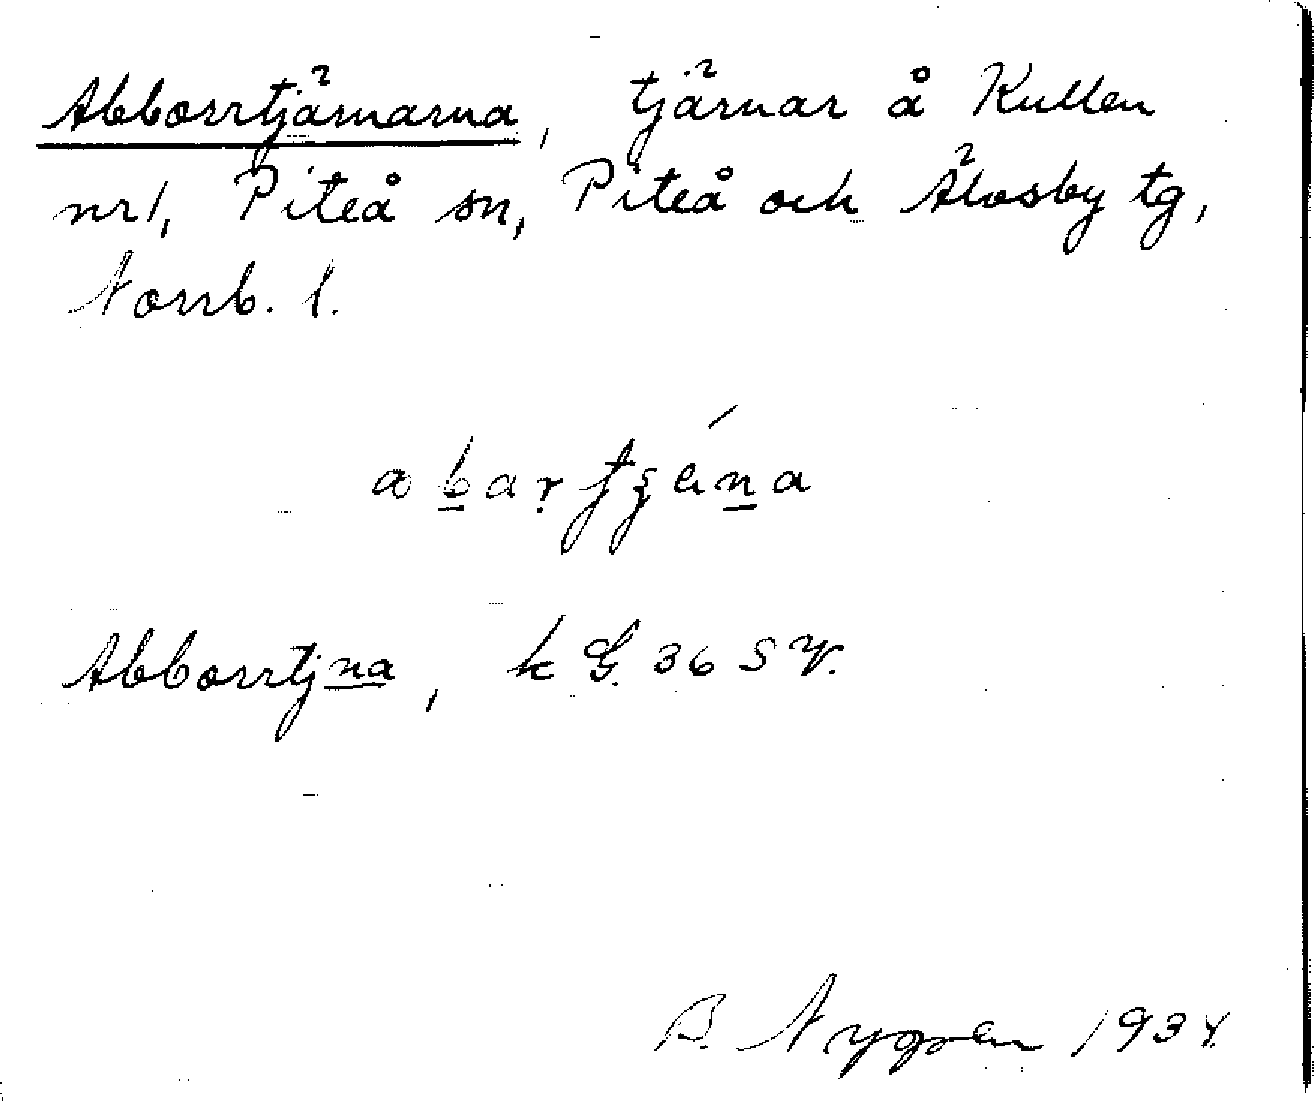 Abborrtjärnarna, tjärnar å Kullen
nr 1, Piteå sn, Piteå och Älvsby tg,
Norrb. l.
Abborrtjna, k G. 36 SV.
B. Nygren 1934.